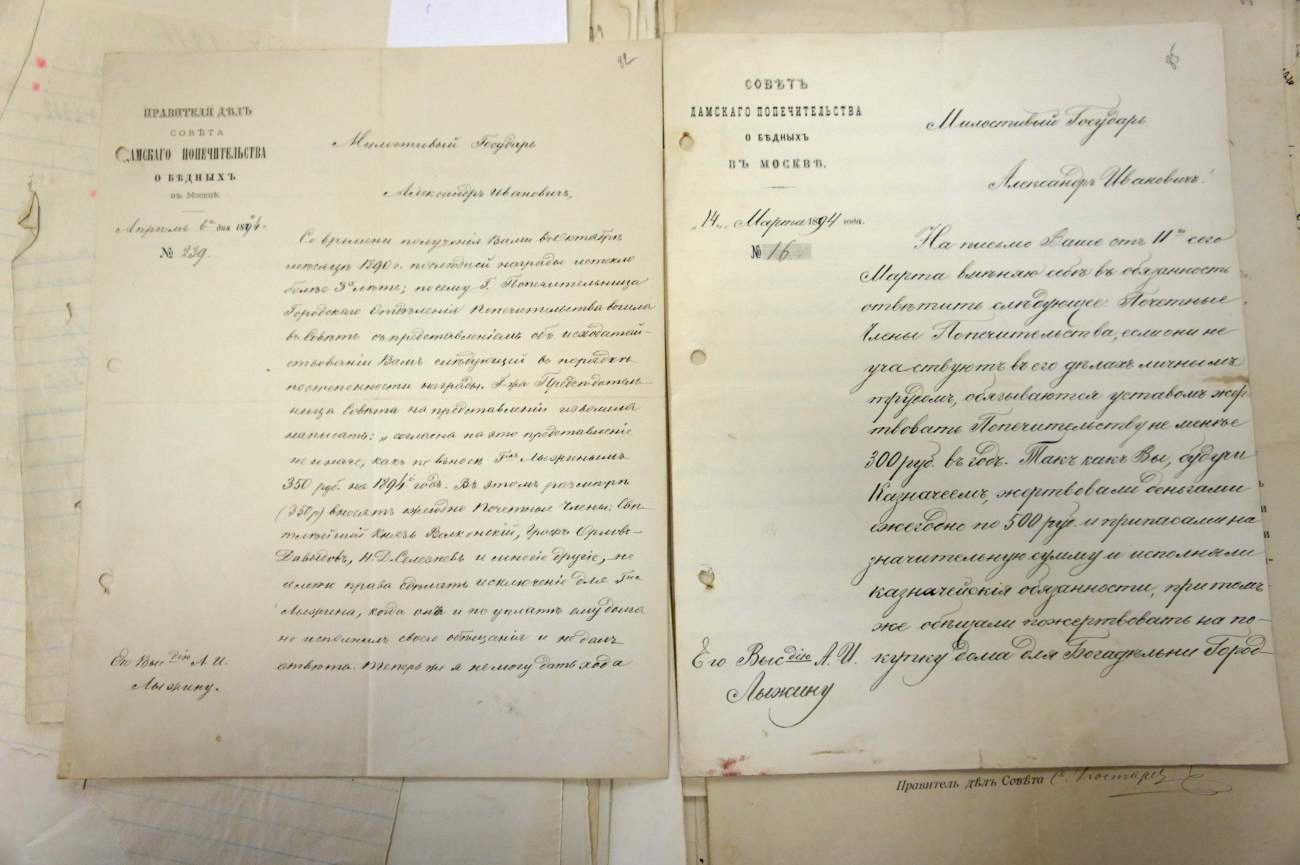 82
ПРАВИТЕЛЯ ДѢЛЪ
СОВѢТА
ДАМСКАГО ПОПЕЧИТЕЛЬСТВА
О БѢДНЫХЪ
въ Москвѣ.
Апрѣля 6го дня 1894 г.
№ 239.
Милостивый Государь
Александръ Ивановичъ,
Со времени полученія Вами въ Октябрѣ
мѣсяцѣ 1890 г. послѣдней награды истекло
болѣе 3хъ лѣтъ; посему Г. Попечительница
Городскаго Отдѣленія Попечительства вошла
въ Совѣтъ съ представленіемъ объ исходатай-
ствованіи Вамъ слѣдующей въ порядкѣ
постепенности награды. Г-жа Предсѣдатель-
ница Совѣта на представленіи изволила
написать: „согласна на это представленіе
не иначе, какъ по взносѣ Гмъ Лыжинымъ
350 руб. на 1894й годъ. Въ этомъ размѣрѣ
(350 р) вносятъ ежегодно Почетные Члены: Свѣ-
тлѣйшій Князь Волконскій, Графъ Орловъ-
Давыдовъ, Н. Д. Селезневъ и многіе другіе, не
имѣю права сдѣлать исключеніе для Гна
Лыжина, когда онъ и по уплатѣ ему долга
не исполнилъ своего обѣщанія и не далъ
отвѣта. Теперь же я не могу дать хода
Его Высдію А. И.
Лыжину.
85
СОВѢТЪ
ДАМСКАГО ПОПЕЧИТЕЛЬСТВА
О БѢДНЫХЪ
ВЪ МОСКВѢ.
„14„ Марта 1894 года.
№ 16
Милостивый Государь
Александръ Ивановичъ!
На письмо Ваше отъ 11го сего
Марта вмѣняю себѣ въ обязанность
отвѣтить слѣдующее. Почетные
Члены Попечительства, если они не
участвуютъ въ его дѣлахъ личнымъ
трудомъ, обязываются уставомъ жер-
твовать Попечительству не менѣе
300 руб. въ годъ. Такъ какъ Вы, будучи
Казначеемъ, жертвовали деньгами
ежегодно по 500 руб. и припасами на
значительную сумму и исполняли
казначейскія обязанности, притомъ
же обѣщали пожертвовать на по-
купку дома для Богадѣльни Город-
Его Высдію А. И.
Лыжину
Правитель дѣлъ Совѣта